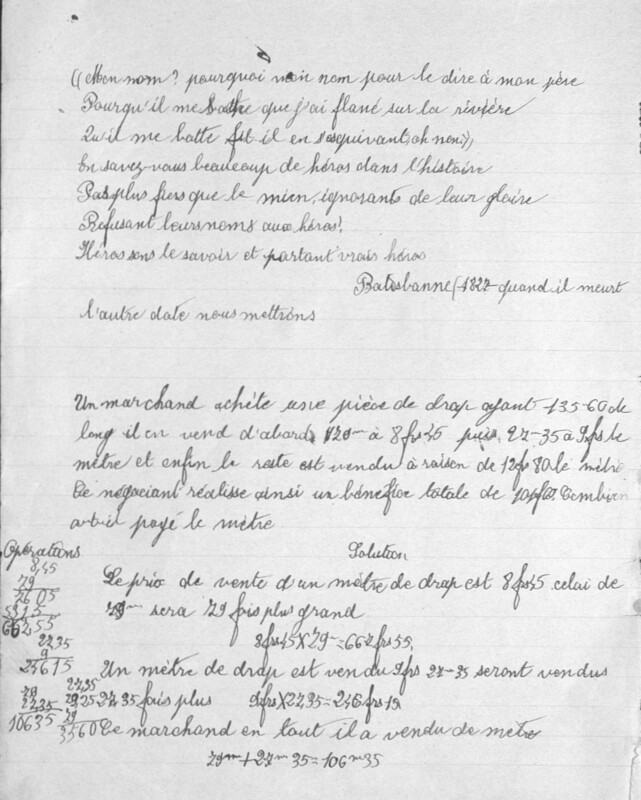 "Mon nom? pourquoi mon nom pour le dire à mon père
Pourqu'il me batte que j'ai flané sur la rivière
Qu'il me batte fit il en s'esquivant, oh non,
En savez-vous beaucoup de héros dans l'histoire
Pas plus fiers que le mien, ignorants de leur gloire
Refusant leurs noms aux héros!
Héros sans le savoir et partant vrais héros
Batisbanne (1827 quand il meurt
l'autre date nous mettrons
Un marchand achète une pièce de drap ayant 135-60 de
long il en vend d'abord 79m à 8frs45 puis 27-35 à 9frs le
mètre et enfin le reste est vendu à raison de 12fs80 le mètre
Ce négociant réalisse ainsi un bénéfice totale de Combien
a-t-il payé le mètre
Opérations
Solution
8,45
79
7605
5915
66755
27,35
9
24615
79
27,35
10635
29,25
3560
Le prix de vente d'un mètre de drap est 8frs45 celui de
79m sera 79 fois plus grand
8frs45X79=667frs55
Un mètre de drap est vendu 9frs 27-35 seront vendus
27,35 fois plus 9frsX27,35=246frs15
Ce marchand en tout il a vendu de mètre
79m+27m35=106m35